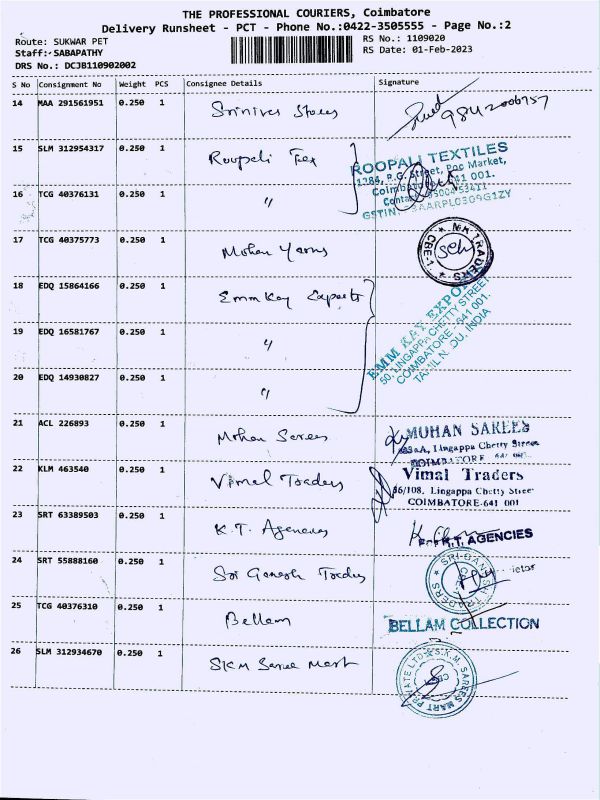 THE PROFESSIONAL COURIERS, Coimbatore
Delivery Runsheet - PCT - Phone No.:0422-3505555 - Page No.:2
Route: SUKWAR PET RS No.: 1109020
Staff:-SABAPATHY RS Date: 01-Feb-2023
DRS No.: DCJB110902002
S No Consignment No Weight PCS Consignee Details Signature
14 MAA 291561951 0.250 1 Srinivas Stores
15 SLM 312954317 0.250 1 Roopali Tex
ROOPALI TEXTILES
1284, P.G. Street, Poo Market,
16 TCG 40376131 0.250 1 "
17 TCG 40375773 0.250 1 Mohan Yarns
CBE-1 TRADERS
18 EDQ 15864166 0.250 1 Emm Kay Exports
EMM KAY
50, LINGAPPA CHETTY STREET
COIMBATORE - 641 001.
19 EDQ 16581767 0.250 1 "
20 EDQ 14930827 0.250 1 "
21 ACL 226893 0.250 1 Mohan Sarees
MOHAN SAREES
Lingappa Chetty Street
COIMBATORE
22 KLM 463540 0.250 1 Vimal Traders
Vimal Traders
96/108, Lingappa Chetty Street
COIMBATORE-641 001
23 SRT 63389503 0.250 1 K.T. Agencies
AGENCIES
24 SRT 55888160 0.250 1 Sri Ganesh Traders
SRI GANESH TRADERS
25 TCG 40376310 0.250 1 Bellam
BELLAM COLLECTION
26 SLM 312934670 0.250 1 SKM Saree Mart
S.K.M. SAREES MART PRIVATE LTD